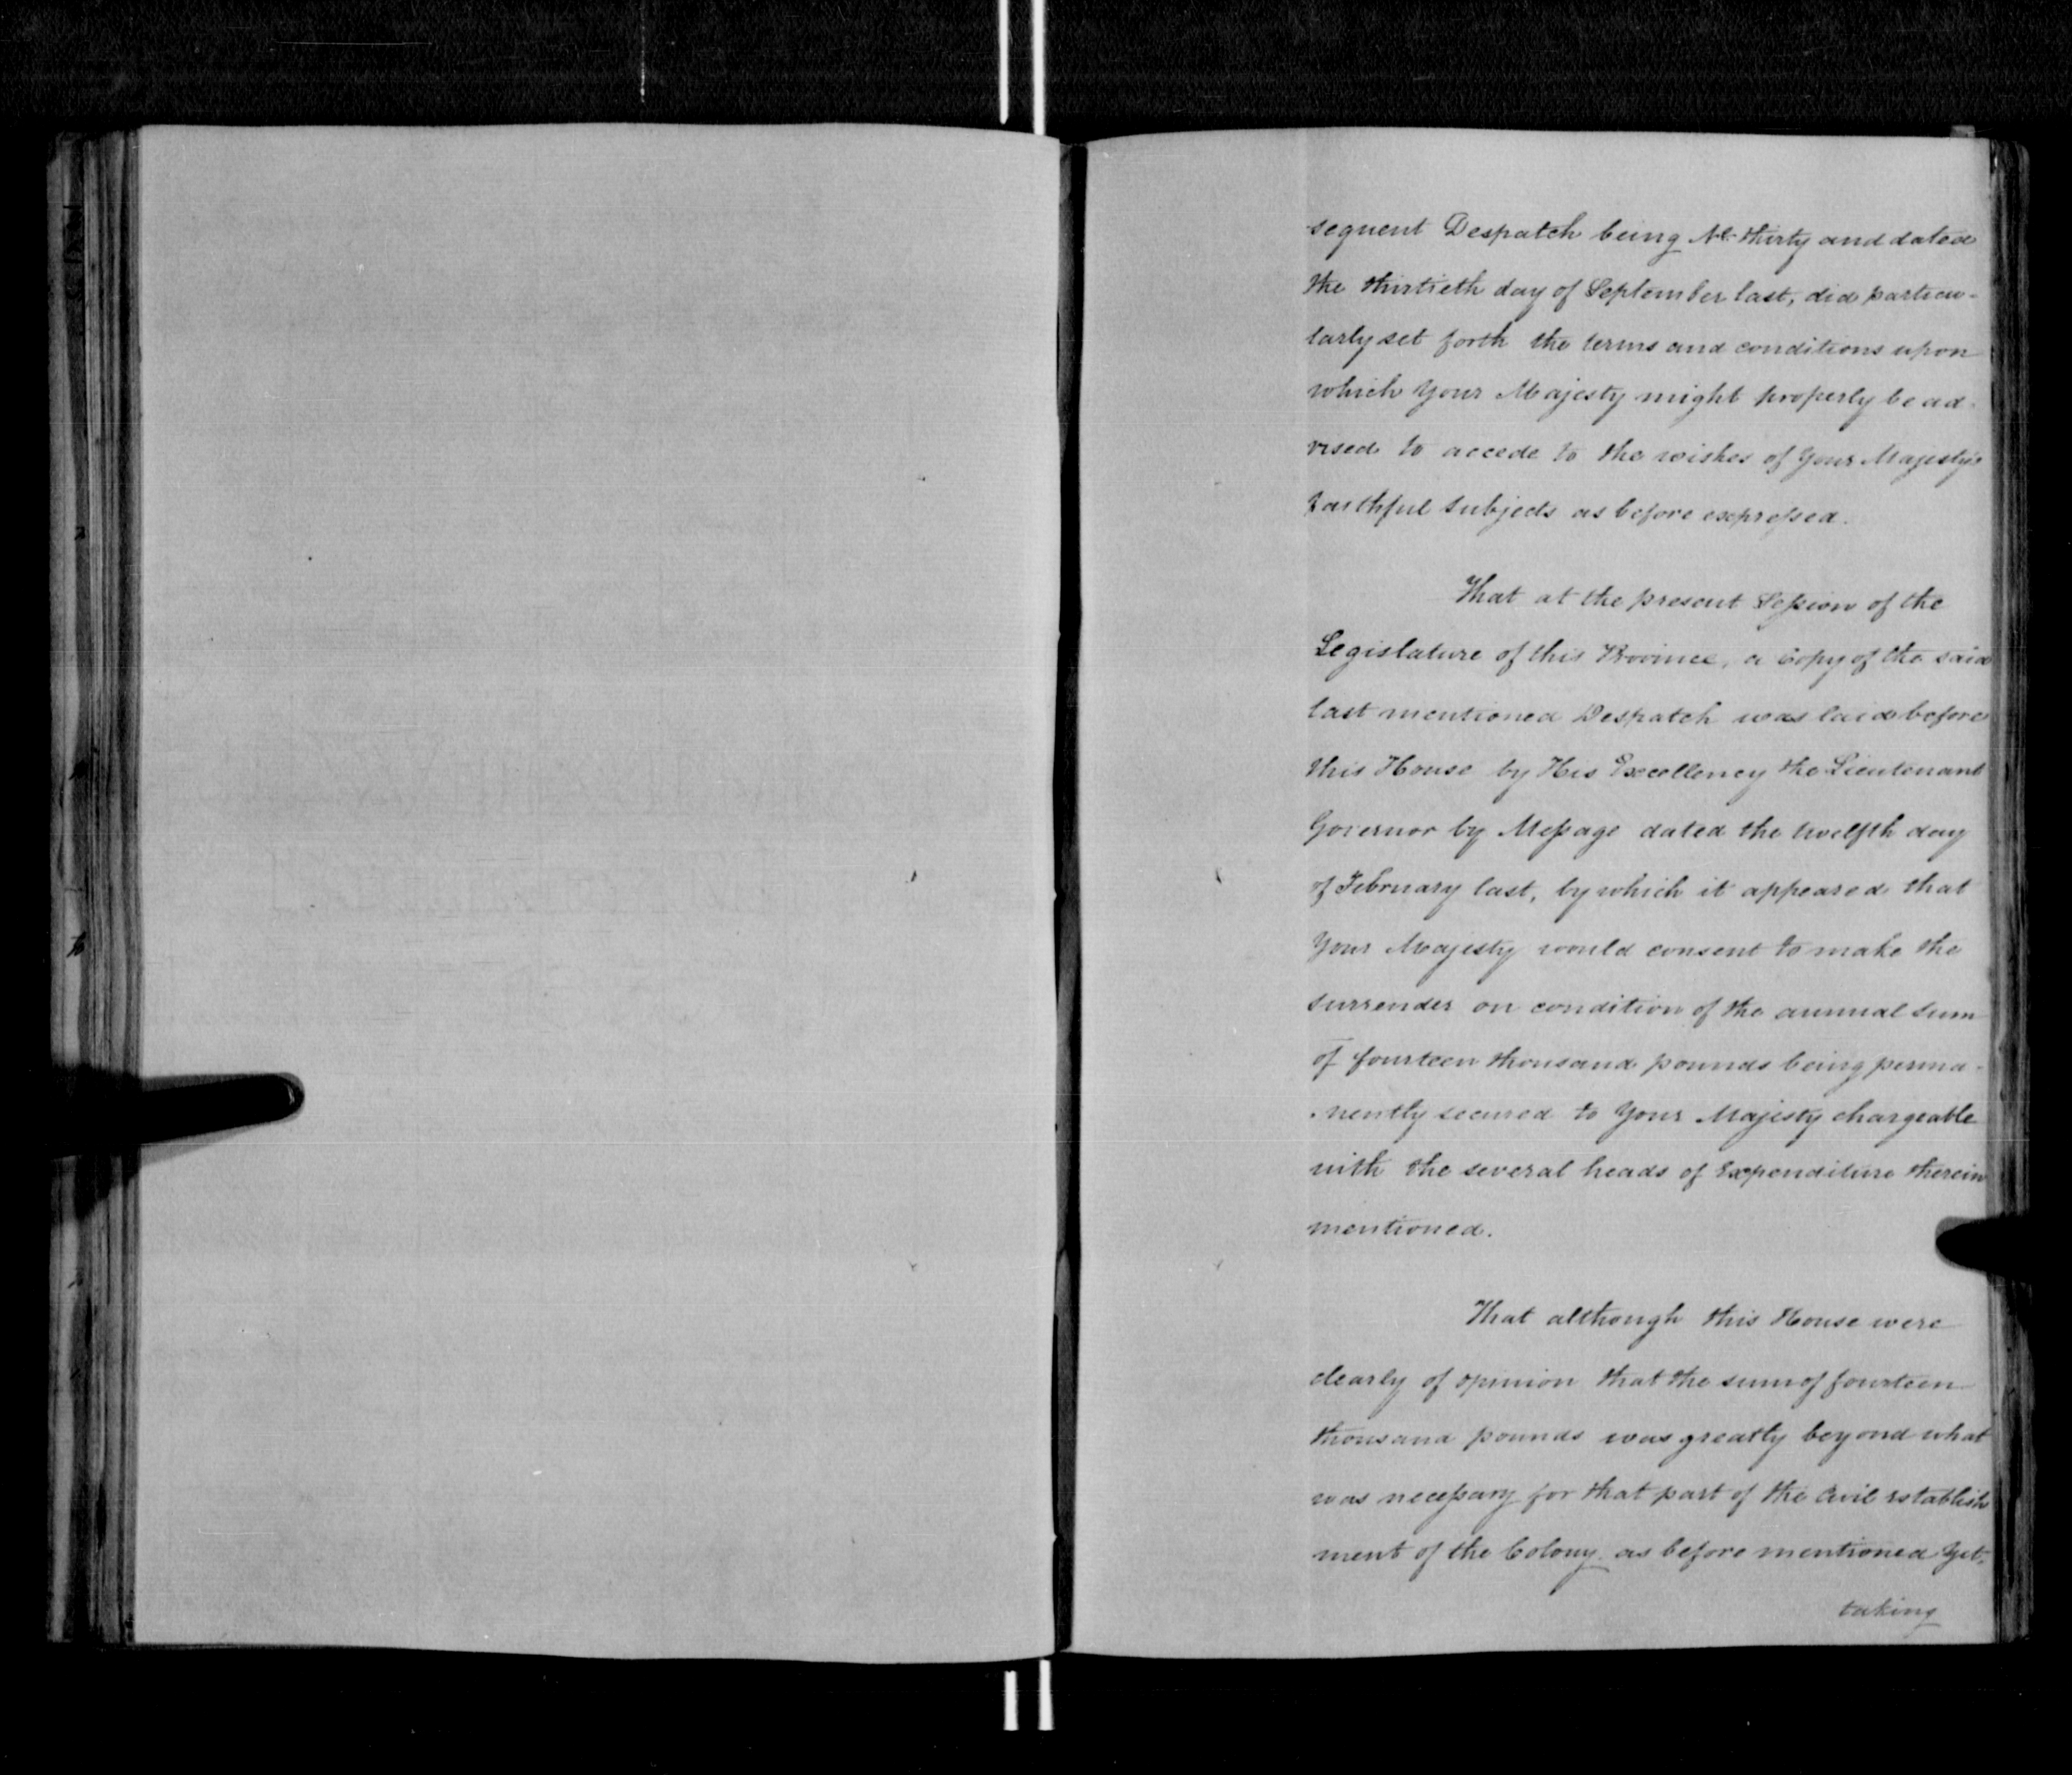 sequent Despatch being No. thirty and dated
the thirtieth day of September last, did particu-
larly set forth the terms and conditions upon
which Your Majesty might properly be ad-
vised to accede to the wishes of Your Majesty's
faithful subjects as before expressed.
That at the present Session of the
Legislature of this Province, a Copy of the said
last mentioned Despatch was laid before
this House by His Excellency the Lieutenant
Governor by Message dated the twelfth day
of February last, by which it appeared that
Your Majesty would consent to make the
surrender on condition of the annual sum
of fourteen thousand pounds being perma-
nently secured to Your Majesty chargeable
with the several heads of Expenditure therein
mentioned.
That although this House were
clearly of opinion that the sum of fourteen
thousand pounds was greatly beyond what
was necessary for that part of the Civil establish
ment of the Colony as before mentioned Yet,
taking